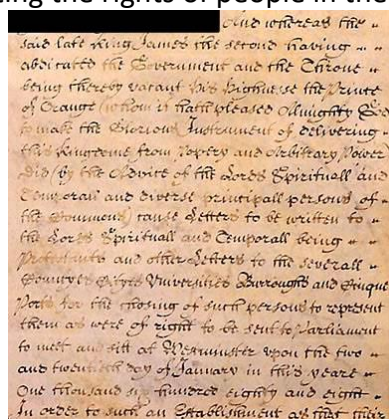 ing the rights of people in the
And whereas the
said late King James the second having
abdicated the Government and the Throne
being thereby vacant His Highnesse the Prince
of Orange (whom it hath pleased Almighty God
to make the Glorious Instrument of delivering
this Kingdome from Popery and Arbitrary Power
did (by the Advice of the Lords Spirituall and
Temporall and diverse principall persons of
the Commons) cause Letters to be written to
the Lords Spirituall and Temporall being
Protestants and other Letters to the severall
Countyes Cityes Universities Burroughs and Cinque
Ports for the choosing of such persons to represent
them as were of right to be sent to Parliament
to meet and sitt at Westminster upon the two
and twentieth day of January in this yeare
One thousand six hundred eighty and eight
In order to such an Establishment as that their